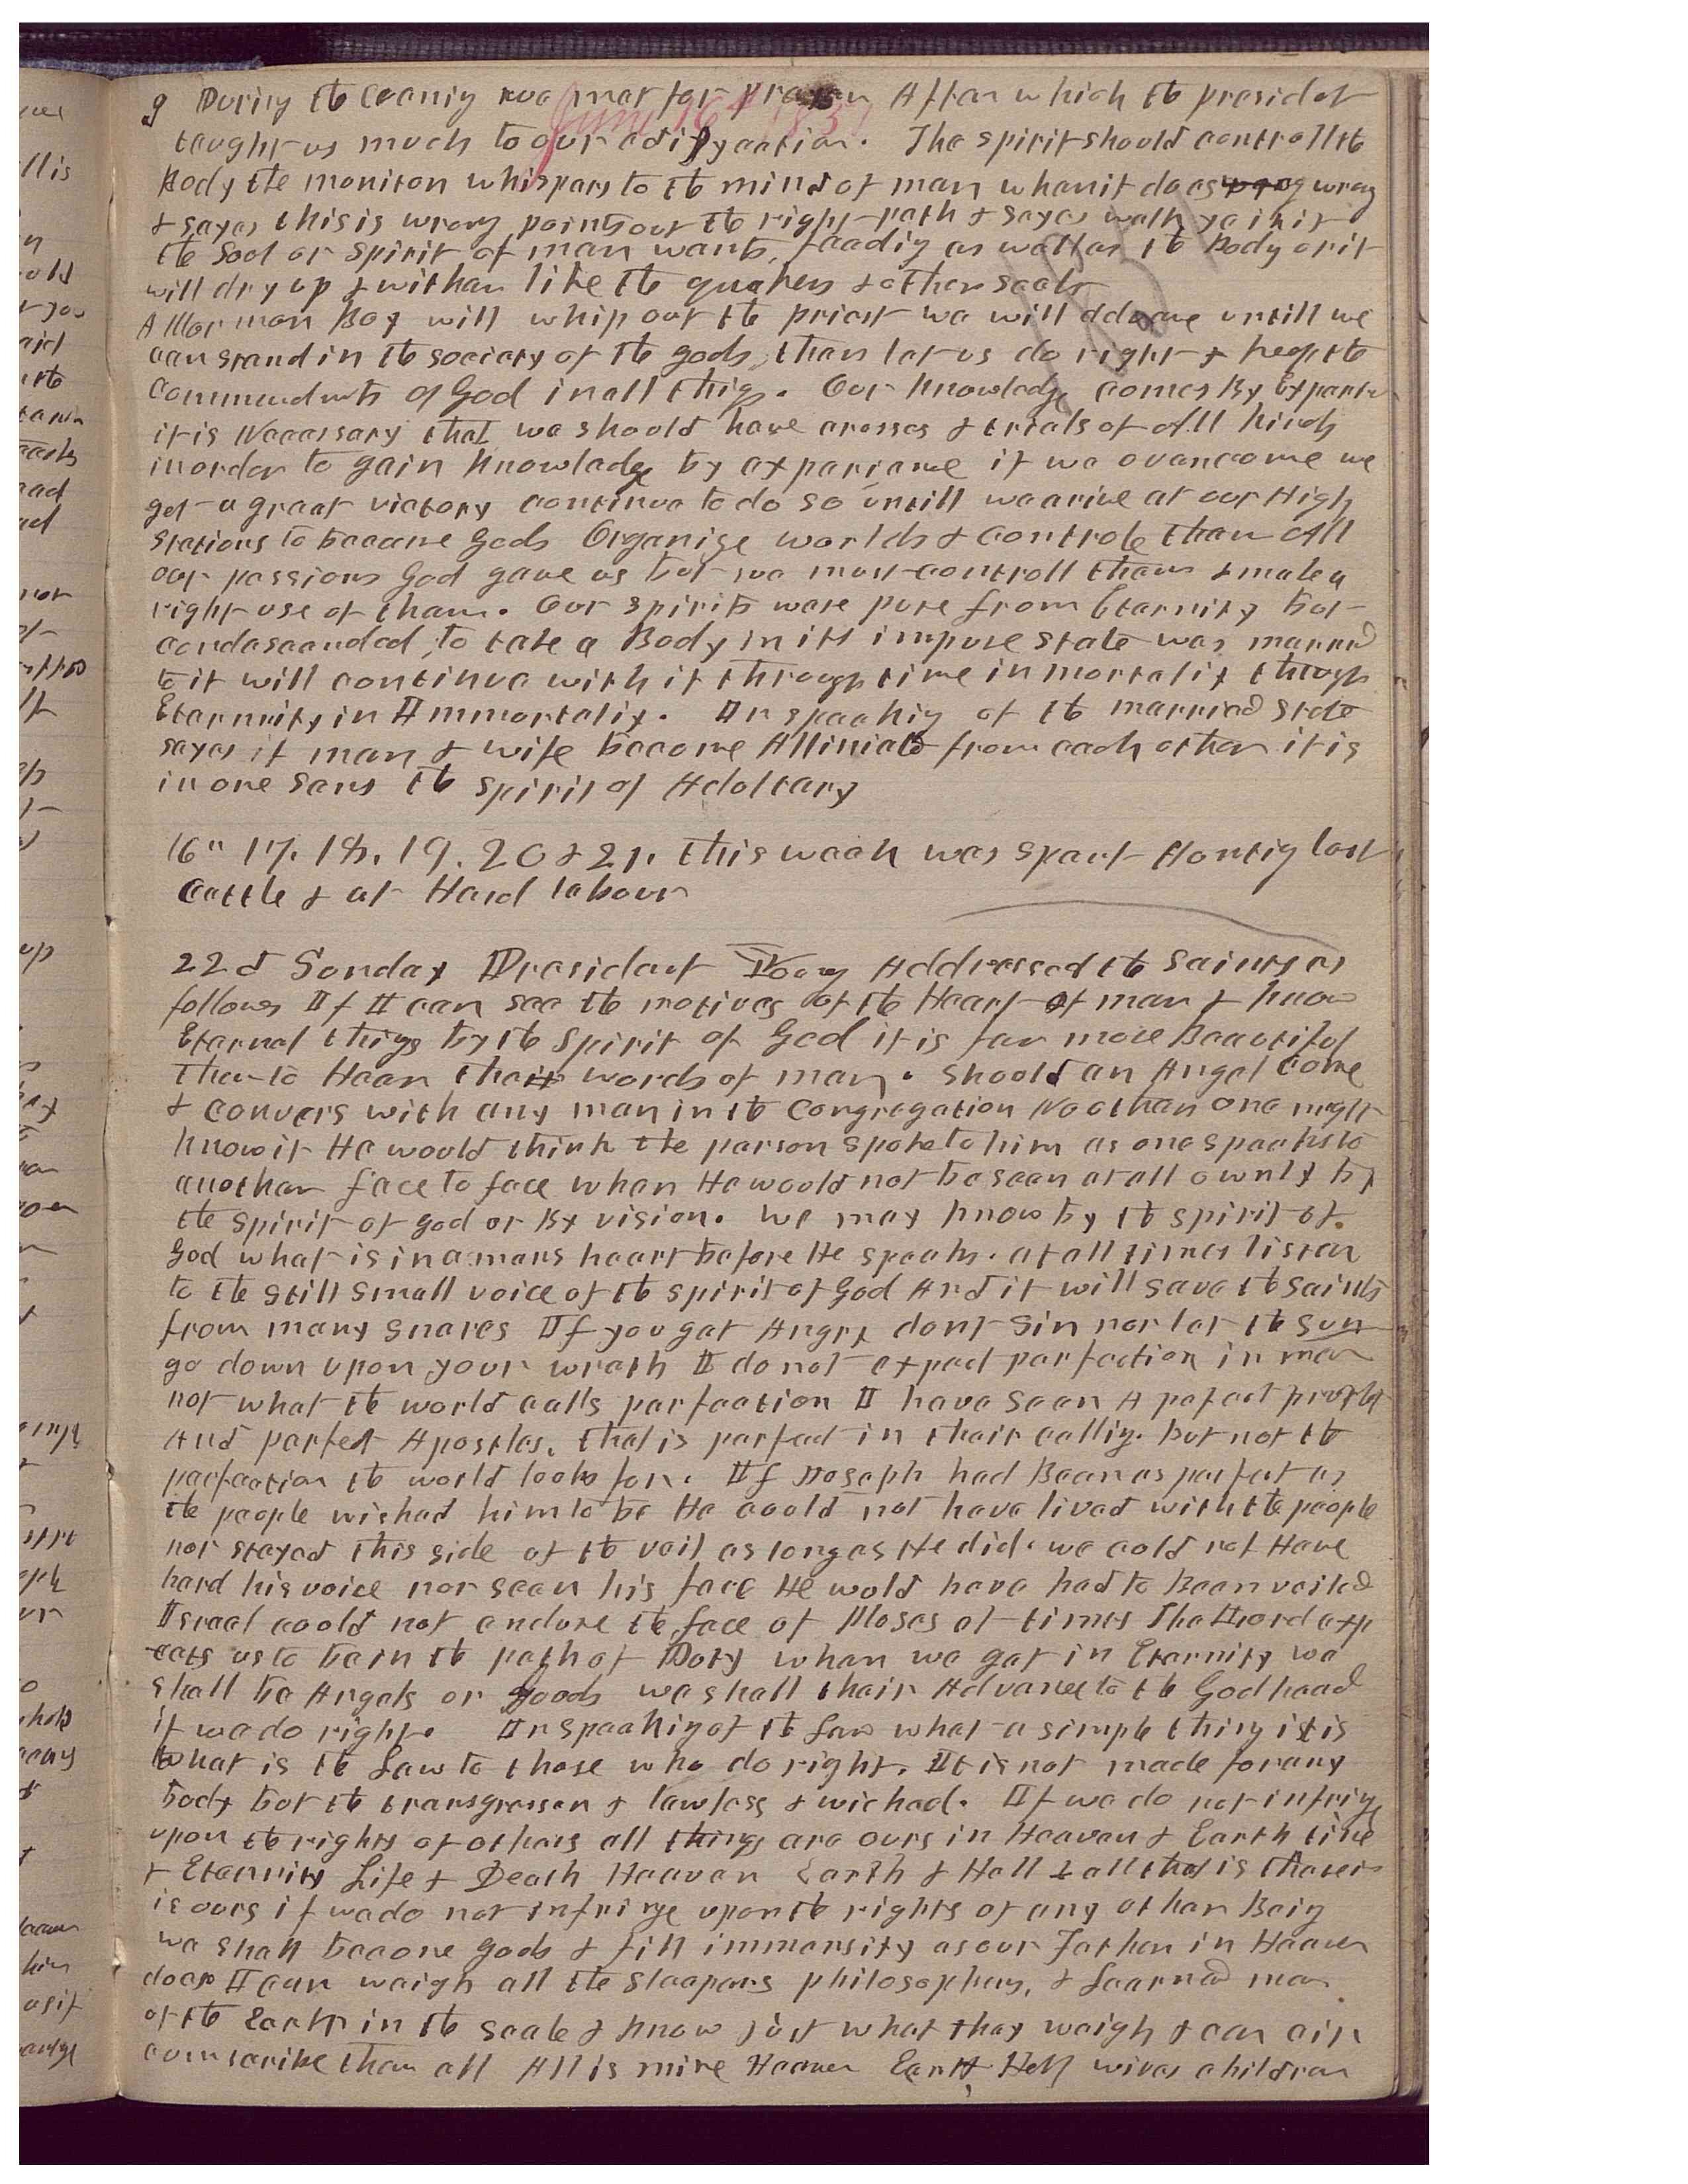 9 During the evenig we met for prayer After which the presidet
June 16th 1851
taught us much to our edifycation. The spirit should controll the
Body the moniton whispers to the mind of man when it does wrong wrong
& sayes this is wrong points out the right path & sayes walk ye in it
the Soul or spirit of man wants feedig as well as the Body or it
will dry up & wither like the quakers & other seets
A Mormon Boy will whip out the priest we will advance untill we
can stand in the society of the gods, then let us do right & keep the
Commendmts of God in all thigs. Our knowledge comes By Experie
it is Necessary that we should have crosses & trials of All kinds
in order to gain knowledge by experiance if we overcome we
get a great victory continue to do so untill we arive at our High
stations to become Gods Organise worlds & controle them All
our passions God gave us but we must controll them & make a
right use of them. Our spirits ware pure from Eternity but
condesended to take a Body in its impure state was married
to it will continue with it through time in mortality through
Eternity in Immortality. In speakig of the married state
sayes if man & wife become Alliniats from each other it is
in one sens the spirit of Adoltery
16" 17. 18. 19. 20 & 21. this week was spent Hontig lost
cattle & at Hard labour
22d Sonday President Young Addressed the Saints as
follows If I can see the motives of the Heart of man & know
Eternal things by the Spirit of God it is far more Beautiful
then to Hear their words of man. Should an Angel come
& convers with any man in the Congregation No other one might
know it He would think the person spoke to him as one speaks to
another face to face when He would not be seen at all ownly by
the spirit of god or By vision. We may know by the spirit of
God what is in a mans heart before He speaks. at all times listen
to the still small voice of the spirit of God And it will save the saints
from many snares If you get Angry dont sin nor let the sun
go down upon your wrath I do not expect parfection in man
not what the world calls parfection I have seen A pefect prophet
And parfect Apostles, that is parfect in their callig. but not the
parfection the world looks for. If Joseph had Been as parfect as
the people wished him to be He could not have lived with the people
nor stayed this side of the vail as long as He did. we cold not Have
hard his voice nor seen his face He wold have had to Been vailed
Israel could not endure the face of Moses at times The Lord exp
ects us to be in the path of Duty when we get in Eternity we
shall be Angels or goods we shall their Advance to the Godhead
if we do right. In speakig of the Law what a simple thing it is
what is the Law to those who do right. It is not made for any
body but the transgressor & lawless & wicked. If we do not infrige
upon the rights of others all things are ours in Heaven & Earth time
& Eternity Life & Death Heaven Earth & Hell & all that is therein
is ours if we do not infringe upon the rights of any other Beig
we shall become gods & fill immensity as our Father in Heaven
does I can weigh all the sleepers philosophers, & Learned men
of the Earth in the scale & know just what they weigh & can cir
cumscribe them all All is mine Heaven Earth, Hell wives children